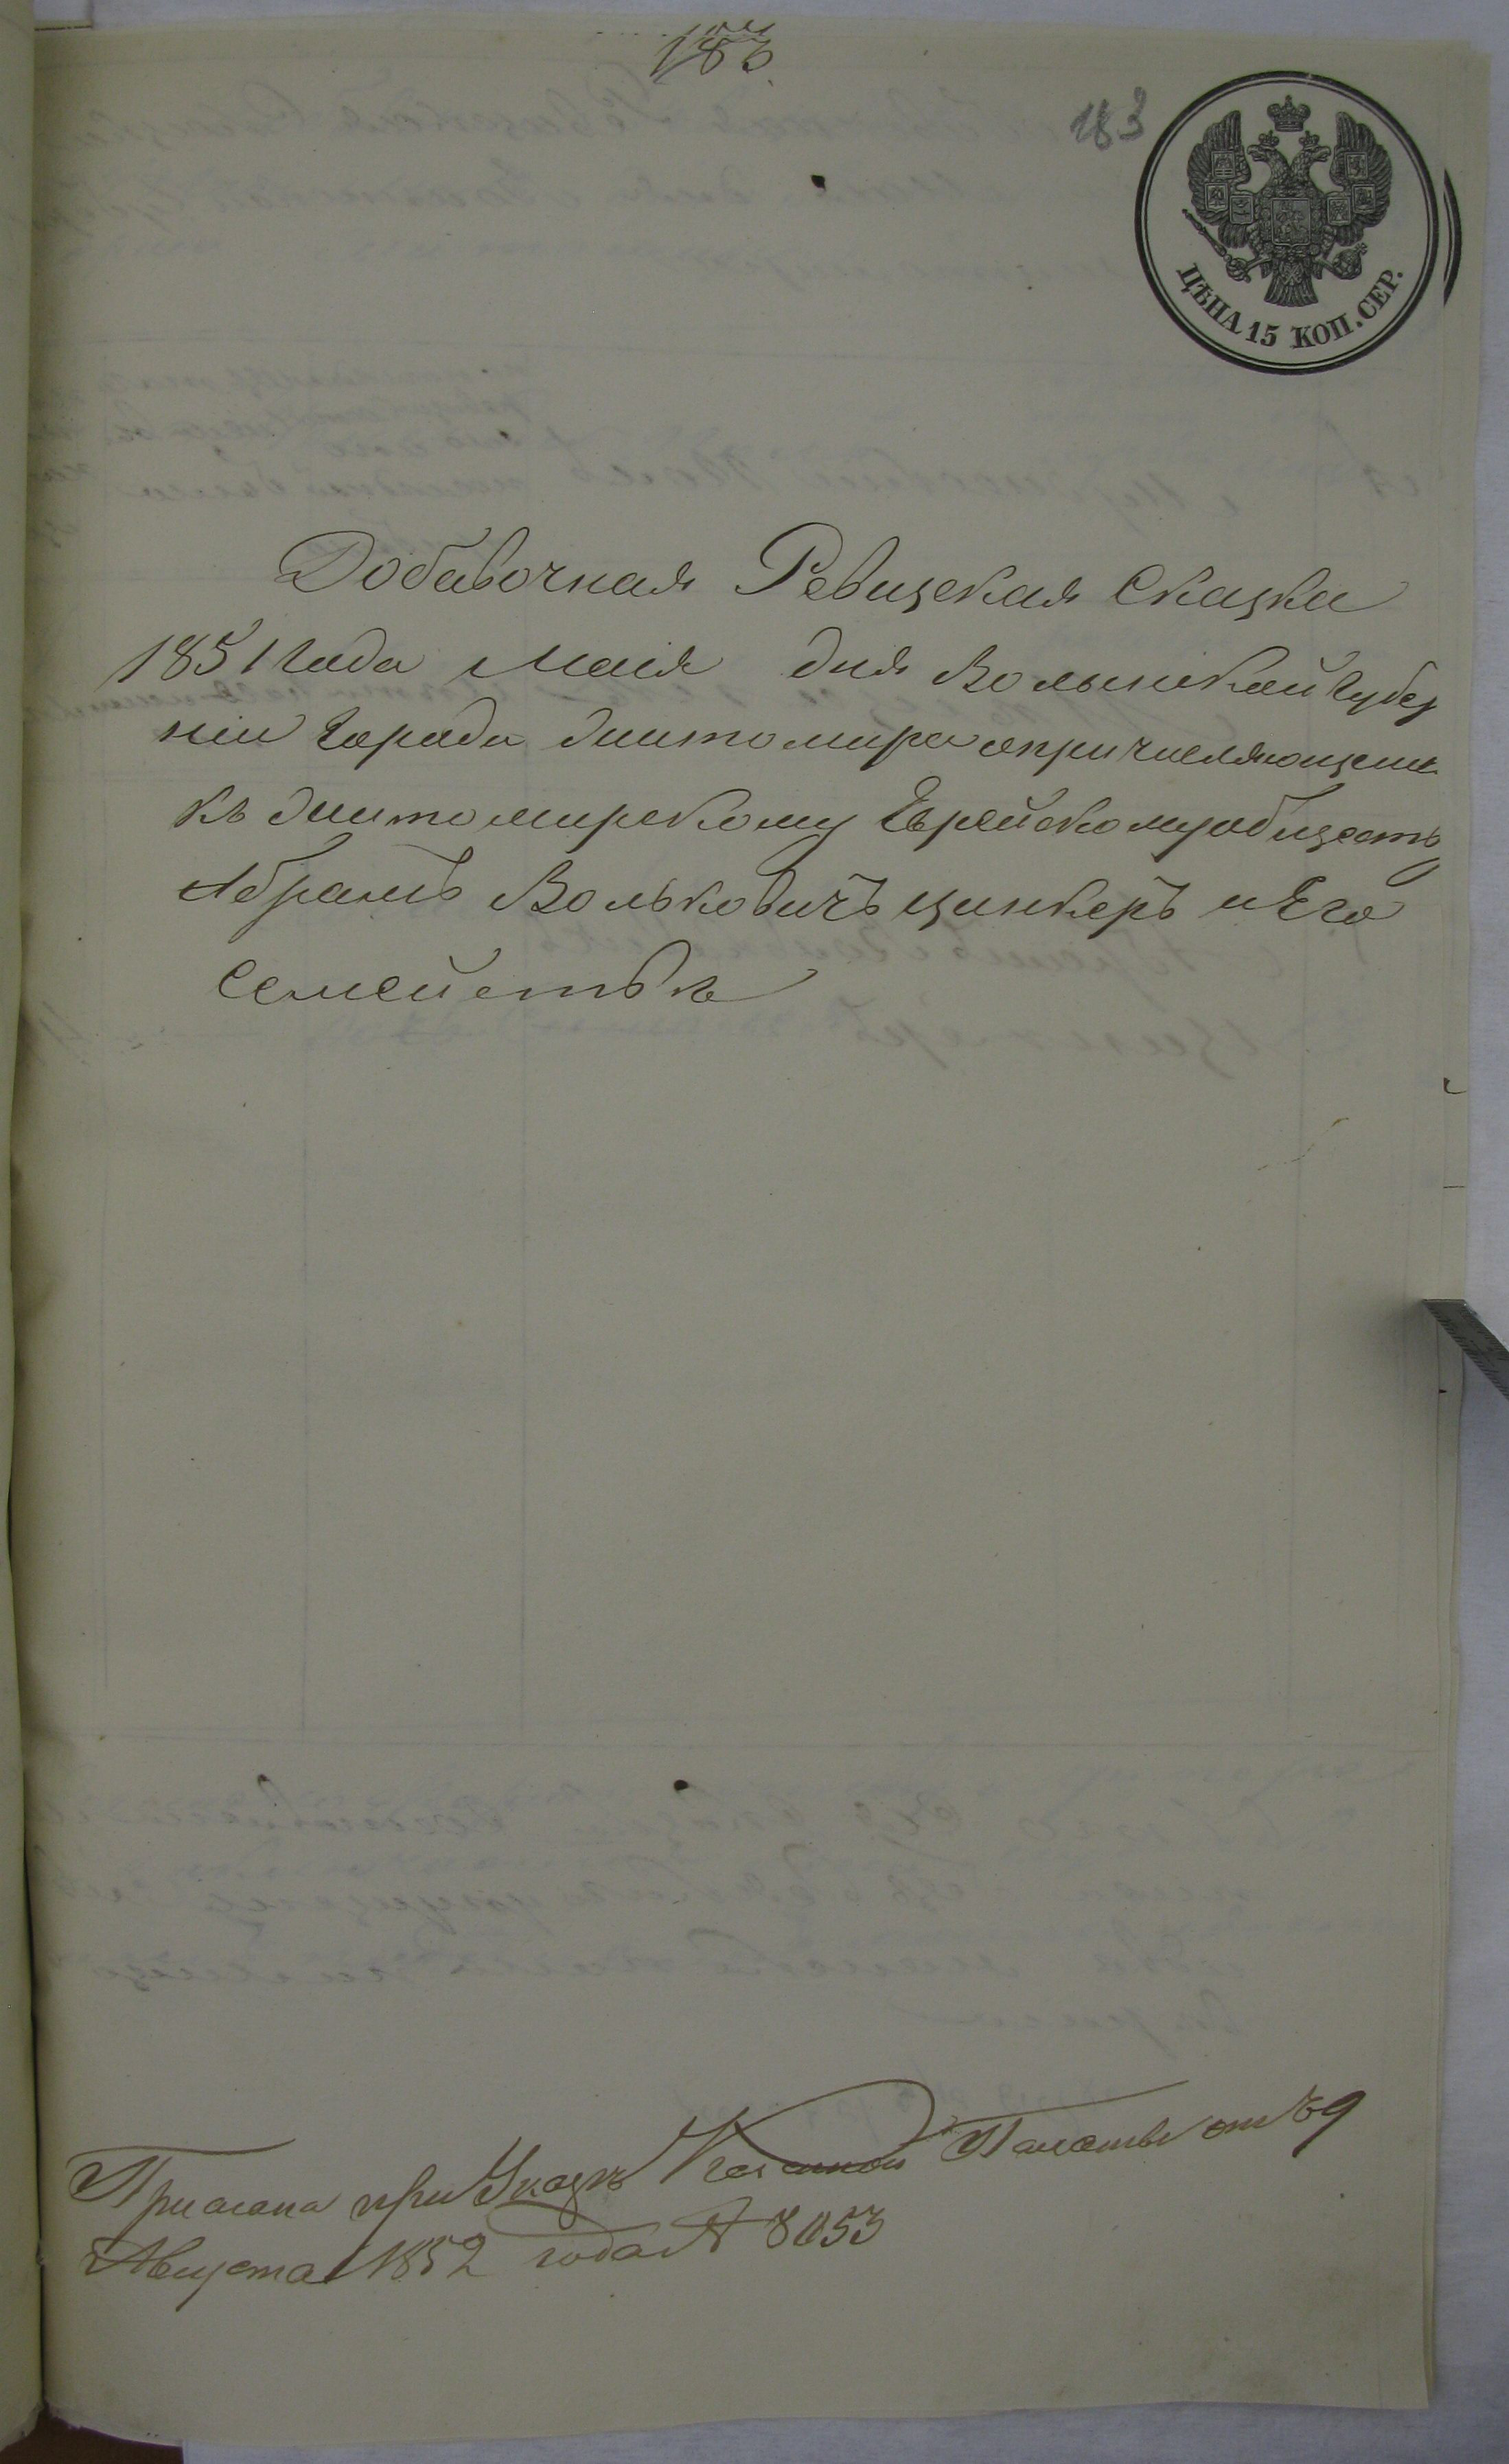 183
183
ЦѢНА 15 КОП. СЕР.
Добавочная Ревизская Сказка
1851 Года Маія дня Волынской Губер
ніи Города Житомира о причисляющемся
къ Житомирскому Еврейскому обществу
Абрамъ Вольковичъ Цинкеръ и Его
Семействѣ
Прислана при Указѣ Казенной Палаты отъ 9
Августа 1852 года № 8053